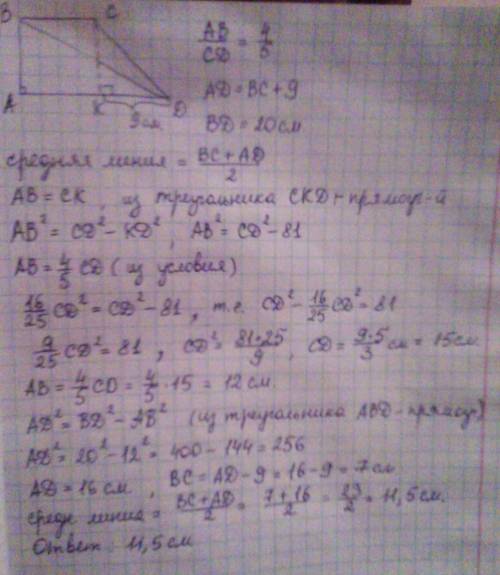 B C
A K D
9 см
AB/CD = 4/5
AD = BC + 9
BD = 20 см
средняя линия = (BC + AD)/2
AB = CK, из треугольника CKD - прямоуг-й
AB² = CD² - KD², AB² = CD² - 81
AB = 4/5 CD (из условия)
16/25 CD² = CD² - 81, т.е. CD² - 16/25 CD² = 81
9/25 CD² = 81, CD² = 81·25/9, CD = 9·5/3 см = 15 см
AB = 4/5 CD = 4/5 · 15 = 12 см.
AD² = BD² - AB² (из треугольника ABD - прямоуг)
AD² = 20² - 12² = 400 - 144 = 256
AD = 16 см, BC = AD - 9 = 16 - 9 = 7 см
средн. линия = (BC + AD)/2 = (7 + 16)/2 = 23/2 = 11,5 см.
Ответ: 11,5 см